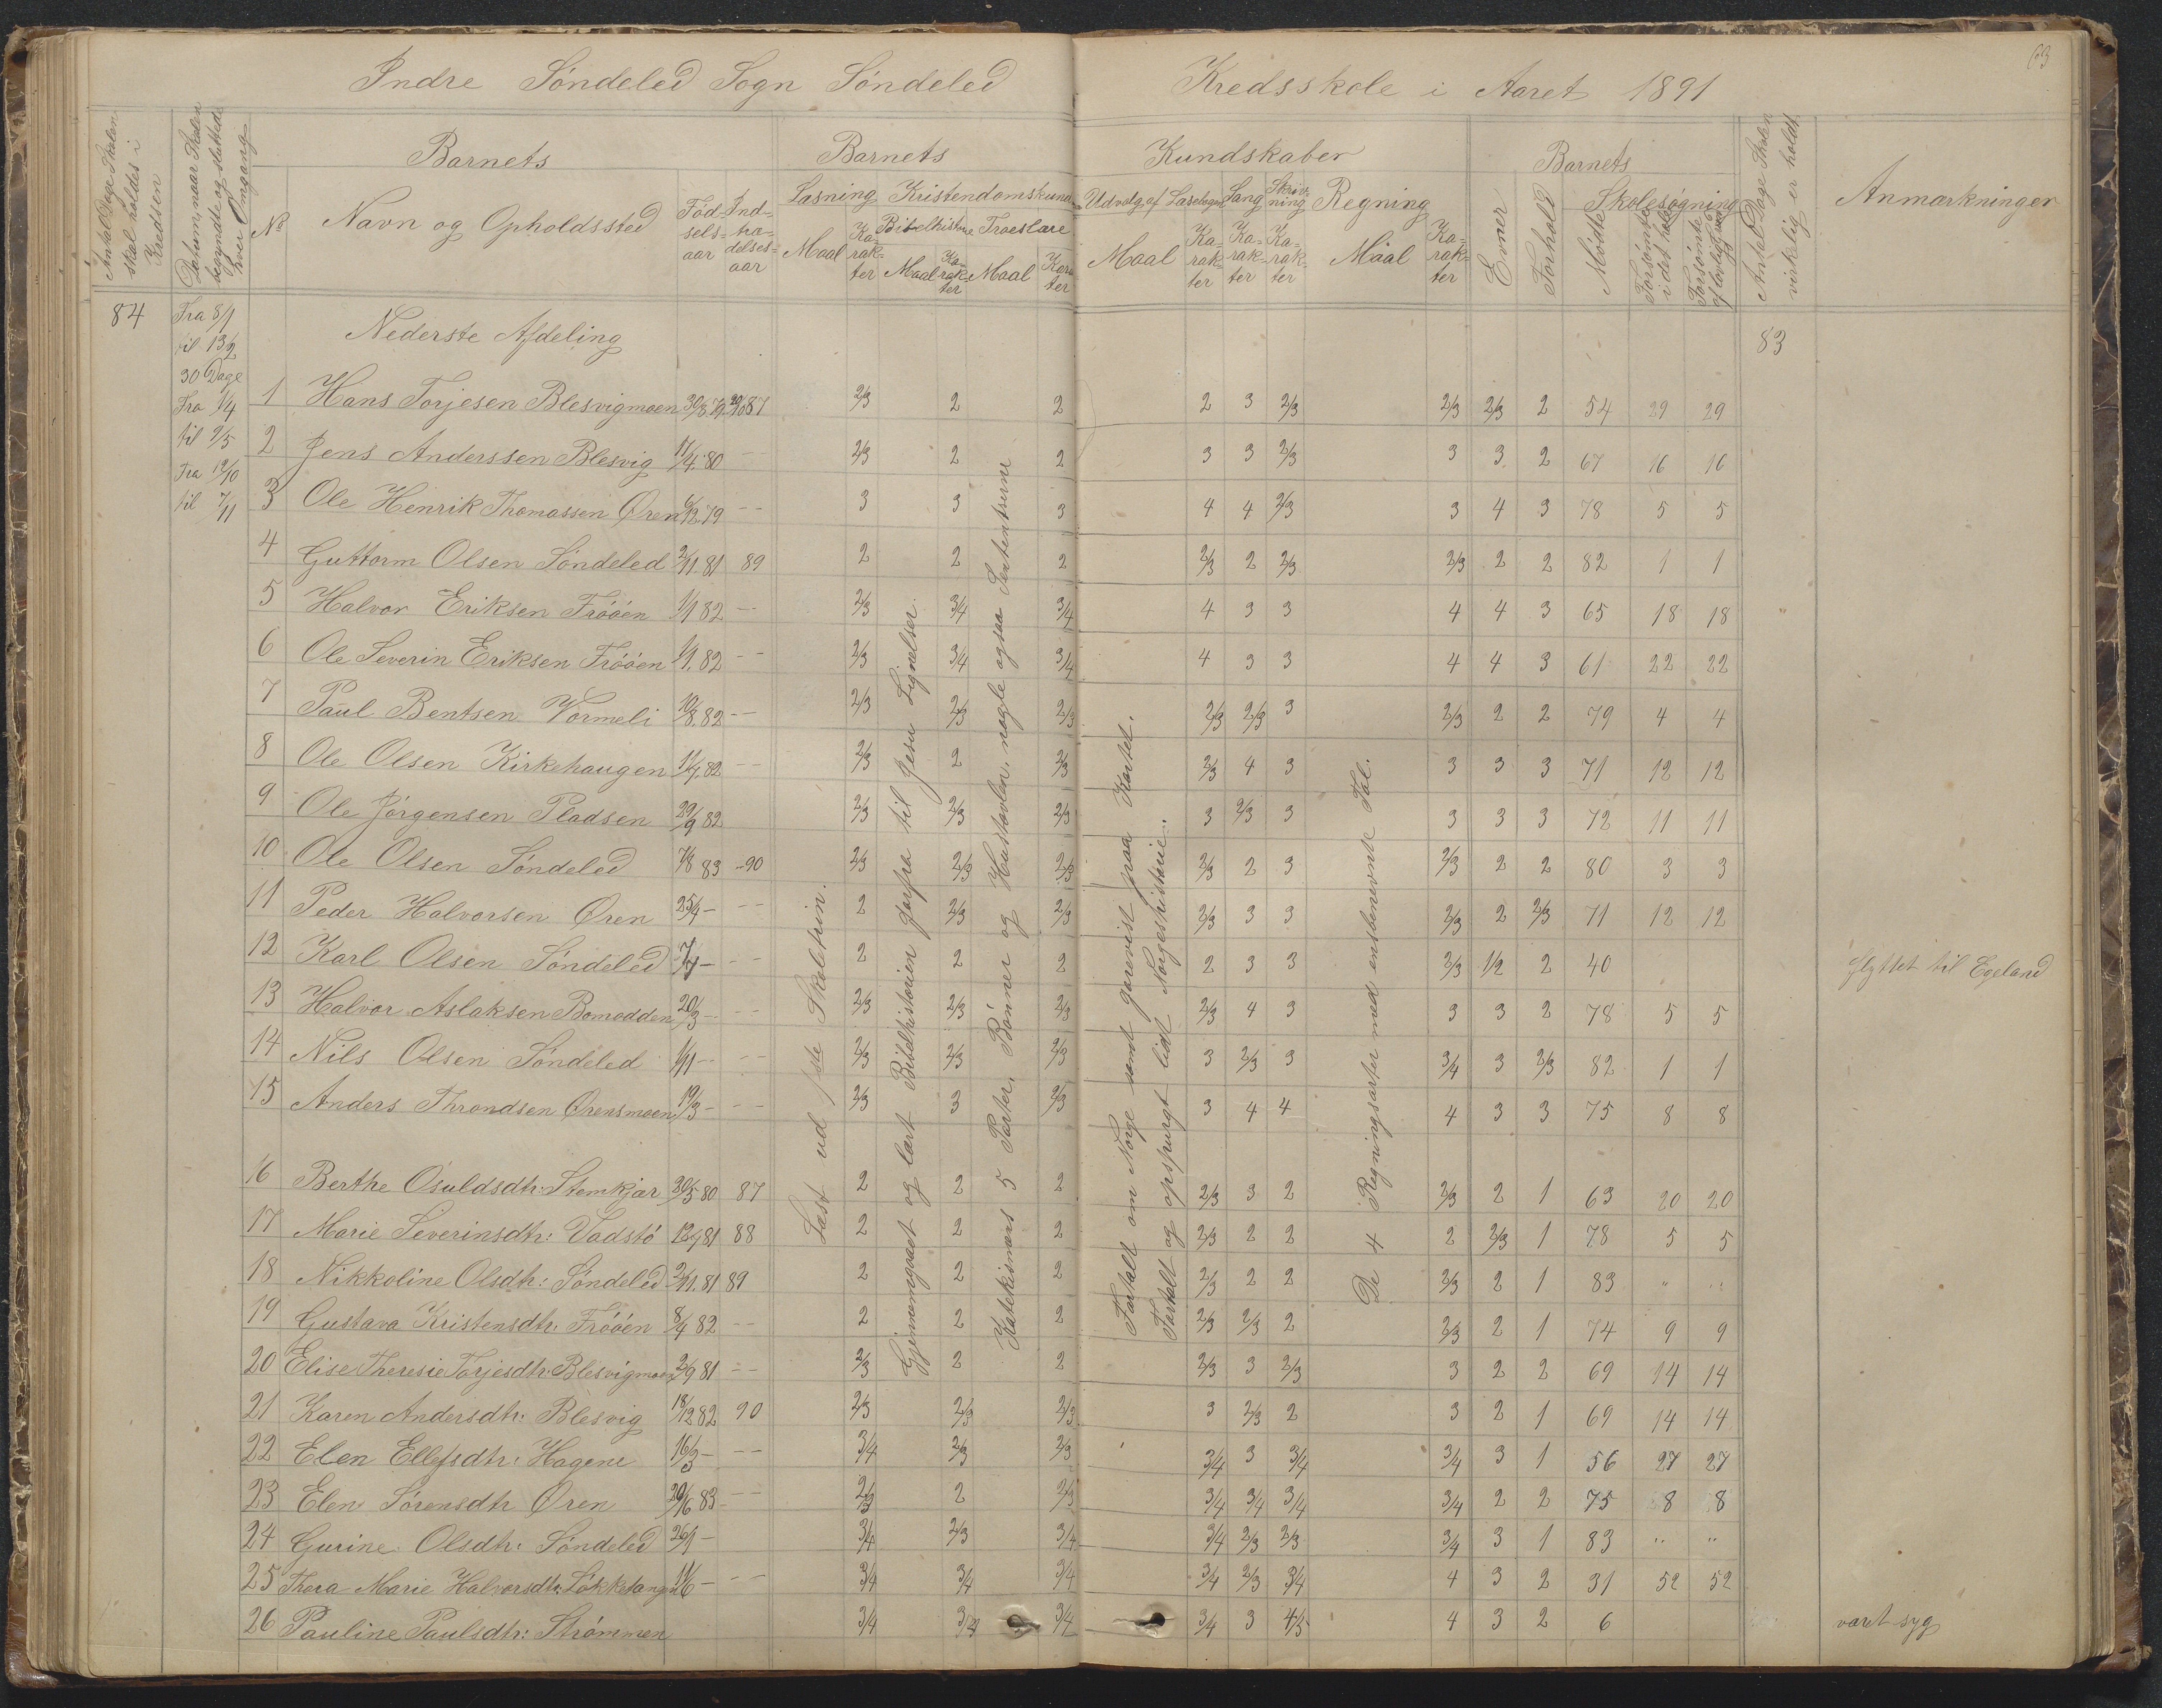 63
Indre Søndeled Sogn Søndeled Kredsskole i Aaret 1891
Antal Dage Skolen skal holdes i Kredsen
Datum, naar Skolen begyndte og sluttede hver Omgang
No
Barnets
Navn og Opholdssted
Fødselsaar
Indtrædelsesaar
Barnets Kundskaber
Læsning
Maal
Karakter
Kristendomskund
Bibelhistorie
Maal
Karakter
Troeslære
Maal
Karakter
Udvalg af Læsebogen
Maal
Karakter
Sang
Karakter
Skrivning
Karakter
Regning
Maal
Karakter
Barnets
Evner
Forhold
Skolesøgning
Mødte
Forsømte i det hele
Forsømte af
Antal Dage Skolen virkelig er holdt
Anmærkninger
84
Fra 8/1
til 13/2
30 Dage
Fra 1/4
til 9/5
Fra 12/10
til 7/11
83
Nederste Afdeling
1 Hans Torjesen Blesvigmoen 30/8 79 29/10 87 2/3 2 2 2 3 2/3 2/3 2/3 2 54 29 29
2 Jens Anderssen Blesvig 11/4 80 -- 2/3 2 2 3 3 2/3 3 3 2 67 16 16
3 Ole Henrik Thomassen Øren 6/12 79 -- 3 3 3 4 4 2/3 3 4 3 78 5 5
4 Guttorm Olsen Søndeled 2/11 81 89 2 2 2 2/3 2 2/3 2/3 2 2 82 1 1
5 Halvor Eriksen Frøøen 1/1 82 -- 2/3 3/4 3/4 4 3 3 4 4 3 65 18 18
6 Ole Severin Eriksen Frøøen 1/1 82 -- 2/3 3/4 3/4 4 3 3 4 4 3 61 22 22
7 Paul Bentsen Vormeli 10/8 82 -- 2/3 2/3 2/3 2/3 2/3 3 2/3 2 2 79 4 4
8 Ole Olsen Kirkehaugen 11/7 82 -- 2/3 2 2/3 2/3 4 3 3 3 3 71 12 12
9 Ole Jørgensen Pladsen 29/9 82 2/3 2/3 2/3 3 2/3 3 3 3 3 72 11 11
10 Ole Olsen Søndeled 7/8 83 -90 2/3 2/3 2/3 2/3 2 3 2/3 2 2 80 3 3
11 Peder Halvorsen Øren 25/4 - -- 2 2/3 2/3 2/3 3 3 2/3 2 2/3 71 12 12
12 Karl Olsen Søndeled 7/7 - -- 2 2 2 2 3 3 2/3 1/2 2 40 flyttet til Egeland
13 Halvor Aslaksen Bomodden 20/3 - -- 2/3 2/3 2/3 2/3 4 3 3 3 2 78 5 5
14 Nils Olsen Søndeled 1/11 - -- 2/3 2/3 2/3 3 2/3 3 3/4 3 2/3 82 1 1
15 Anders Throndsen Ørensmoen 19/3 - -- 2/3 3 2/3 3 4 4 4 3 3 75 8 8
16 Berthe Osuldsdtr: Stemkjær 20/5 80 87 2 2 2 2/3 3 2 2/3 2 1 63 20 20
17 Marie Severinsdtr: Vadstø 12/9 81 88 2 2 2 2/3 2 2 2 2/3 1 78 5 5
18 Nikkoline Olsdtr: Søndeled 2/11 81 89 2 2 2 2/3 2 2 2/3 2 1 83 " "
19 Gustava Kristensdtr: Frøøen 8/4 82 -- 2 2 2 2/3 2/3 2 2/3 2 1 74 9 9
20 Elise Theresie Torjesdtr: Blesvigmoen 2/9 81 -- 2/3 2 2 2/3 3 2/3 3 2 2 69 14 14
21 Karen Andersdtr: Blesvig 18/12 82 90 2/3 2/3 2/3 3 2/3 2 3 2 1 69 14 14
22 Elen Ellefsdtr: Hagene 16/3 - -- 3/4 2/3 2/3 3/4 3 3/4 3/4 3 1 56 27 27
23 Elen Sørensdtr Øren 20/6 83 -- 2/3 2 2/3 3/4 3/4 3/4 3/4 2 2 75 8 8
24 Gurine Olsdtr: Søndeled 26/1 - 3/4 2/3 3/4 3/4 2/3 2/3 3/4 3 1 83 " "
25 Thora Marie Halvorsdtr: Løkketangen 11/6 - -- 3/4 3/4 3/4 3/4 2/3 3/4 4 3 2 31 52 52
26 Pauline Paulsdtr: Strømmen 3/4 3/4 3/4 3/4 3 4/5 4 3 2 6 været syg
Læst ud 1ste Skoletrin.
Gjennemgaaet og lært Bibelhistorien forfra til Jesu Lignelser.
Katekismens 5 Parter, Bønner og Hustavlen, nogle ogsaa Sententserne
Fortalt om Norge samt gjenvist paa Kartet.
Fortalt og opspurgt lidt Norgeshistorie.
De 4 Regningsarter med ensbenævnte Tal.